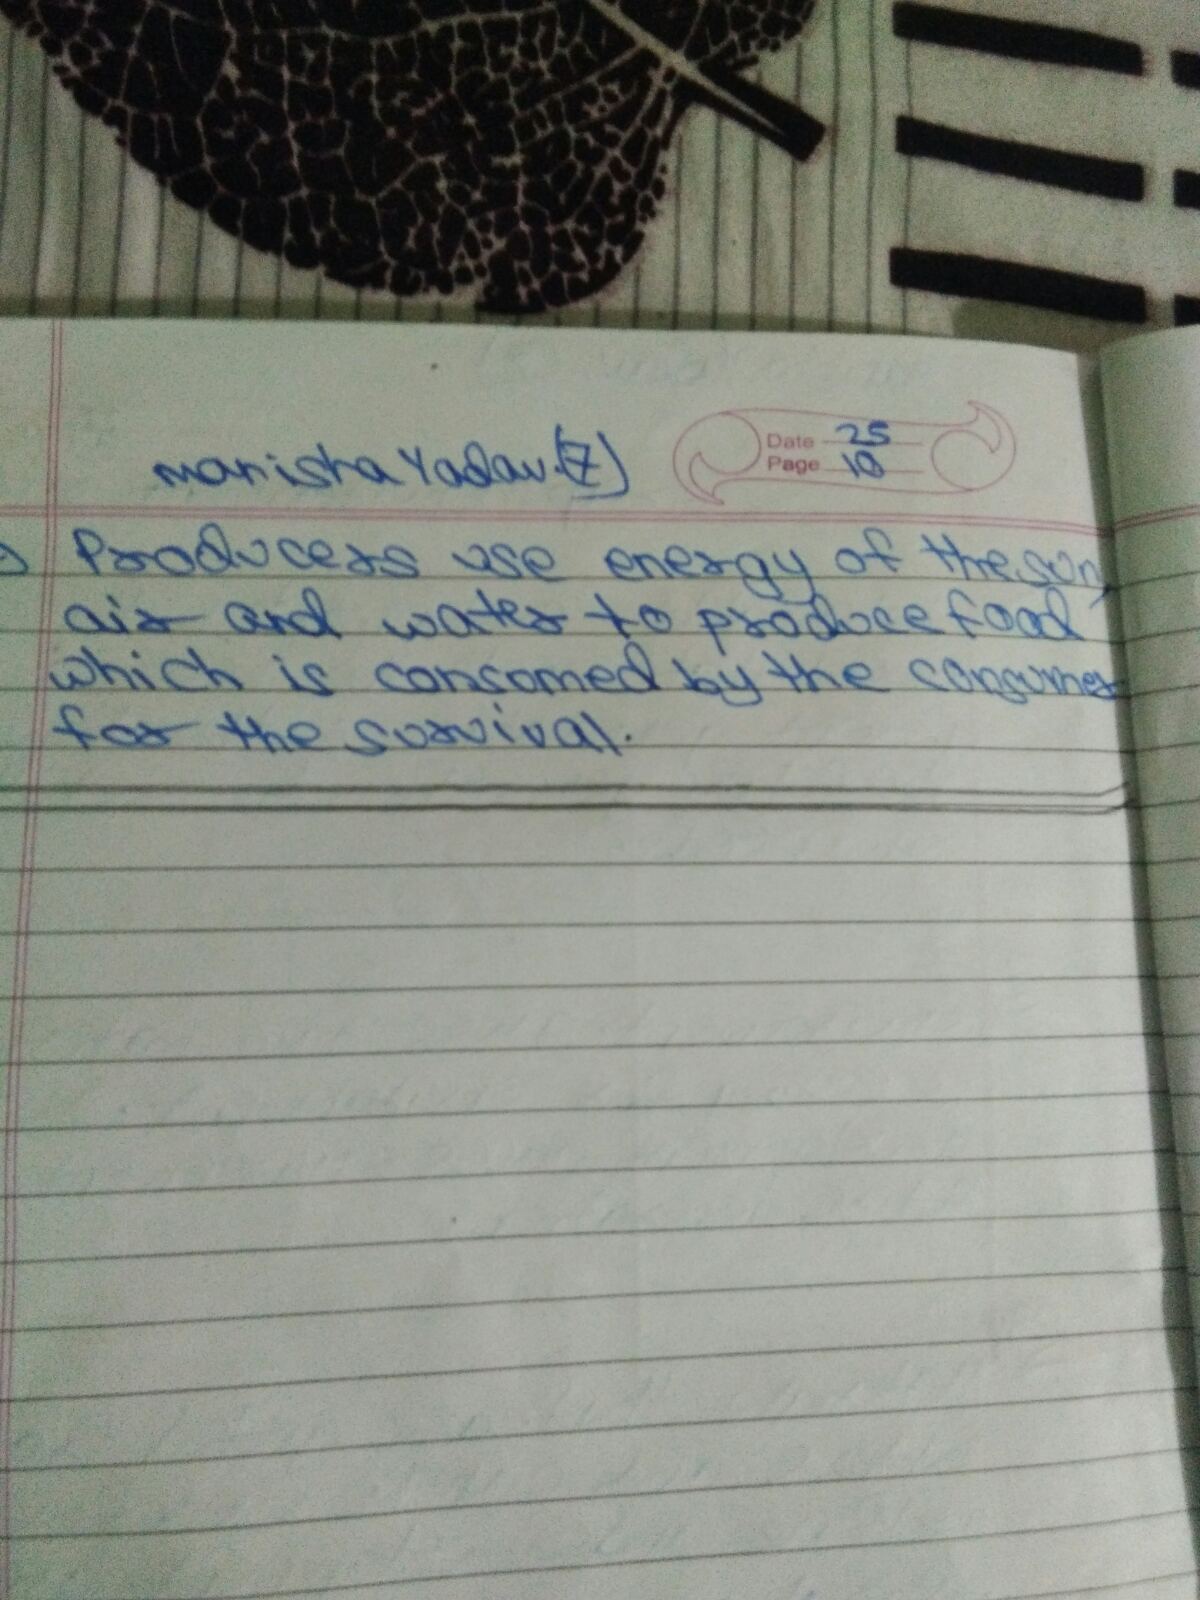 Manisha Yadav.(7)
Date 25
Page 10
Producers use energy of the sun,
air and water to produce food
which is consomed by the consumer
for the survival.